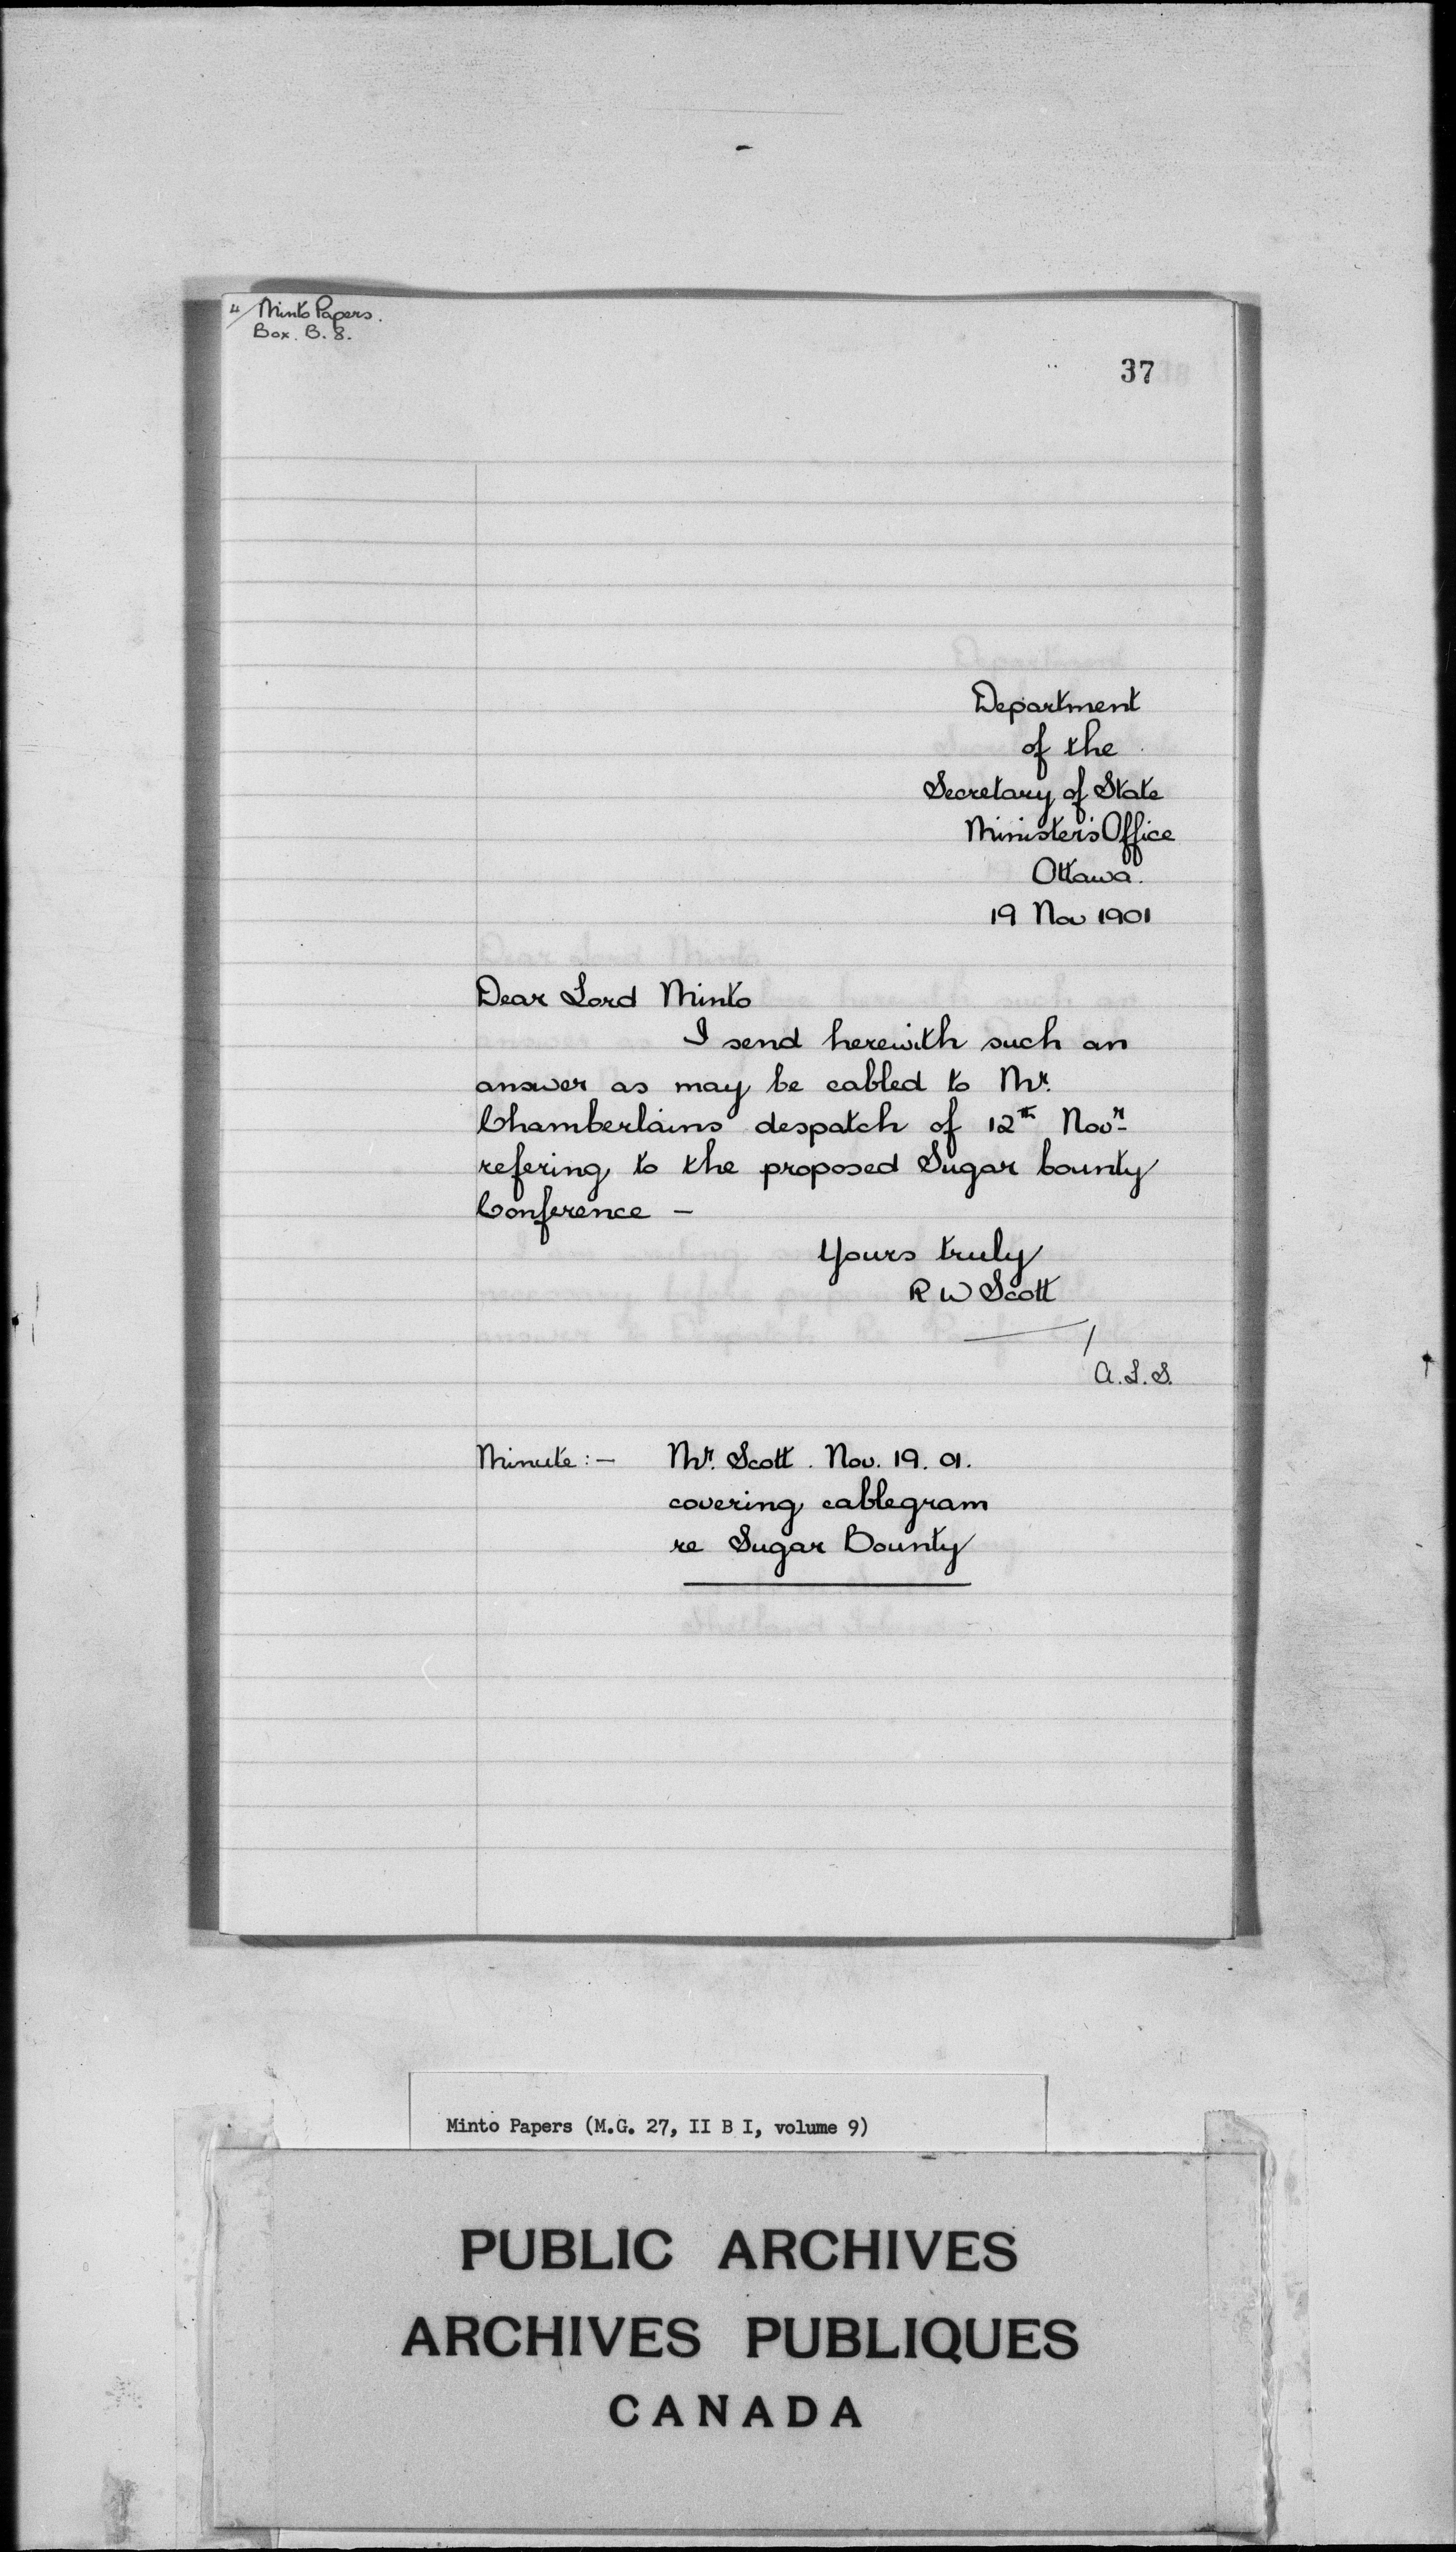 4/ Minto Papers.
Box. B. 8.
37
Department
of the
Secretary of State
Minister's Office
Ottawa.
19 Nov 1901
Dear Lord Minto
I send herewith such an
answer as may be cabled to Mr.
Chamberlains despatch of 12th Novr
refering to the proposed Sugar bounty
Conference —
Yours truly
R W Scott
A.L.S.
Minute:— Mr. Scott. Nov. 19. 01.
covering cablegram
re Sugar Bounty
Minto Papers (M.G. 27, II B I, volume 9)
PUBLIC ARCHIVES
ARCHIVES PUBLIQUES
CANADA